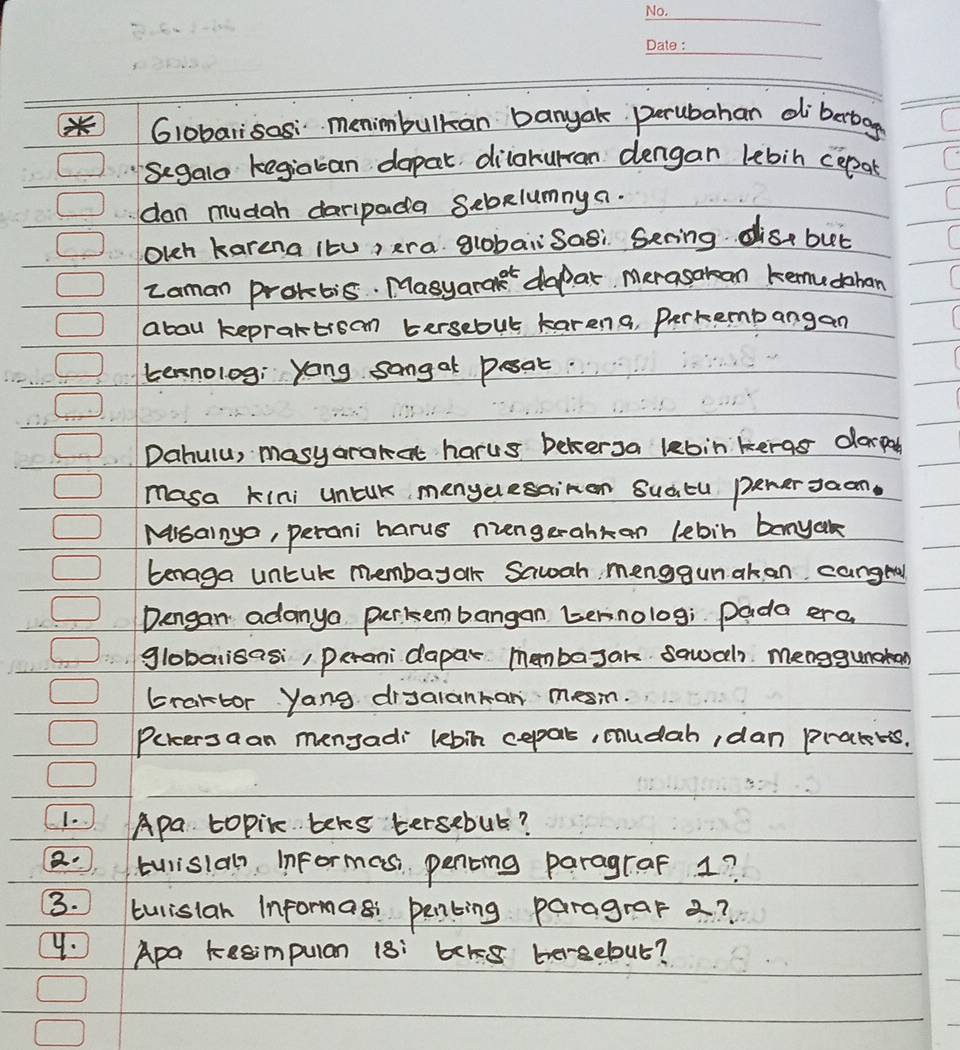 No.
Date :
Globalisasi menimbulkan banyak perubahan di berbag
segala kegiatan dapat dilakukan dengan lebih cepat
dan mudah daripada sebelumnya.
oleh karena itu, era globalisasi sering disebut
zaman praktis. Masyarakat dapat merasakan kemudahan
atau kepraktisan tersebut karena perkembangan
teknologi yang sangat pesat
Dahulu, masyarakat harus bekerja lebih keras daripad
masa kini untuk menyelesaikan suatu pekerjaan.
Misalnya, petani harus mengerahkan lebih banyak
tenaga untuk membajak sawah menggunakan cangkul
Dengan adanya perkembangan teknologi pada era
globalisasi, petani dapat membajak sawah menggunakan
traktor yang dijalankan mesin.
Pekerjaan menjadi lebih cepat, mudah, dan praktis.
1. Apa topik teks tersebut?
2. tulislah informasi penting paragraf 1?
3. tulislah informasi penting paragraf 2?
4. Apa kesimpulan isi teks tersebut?